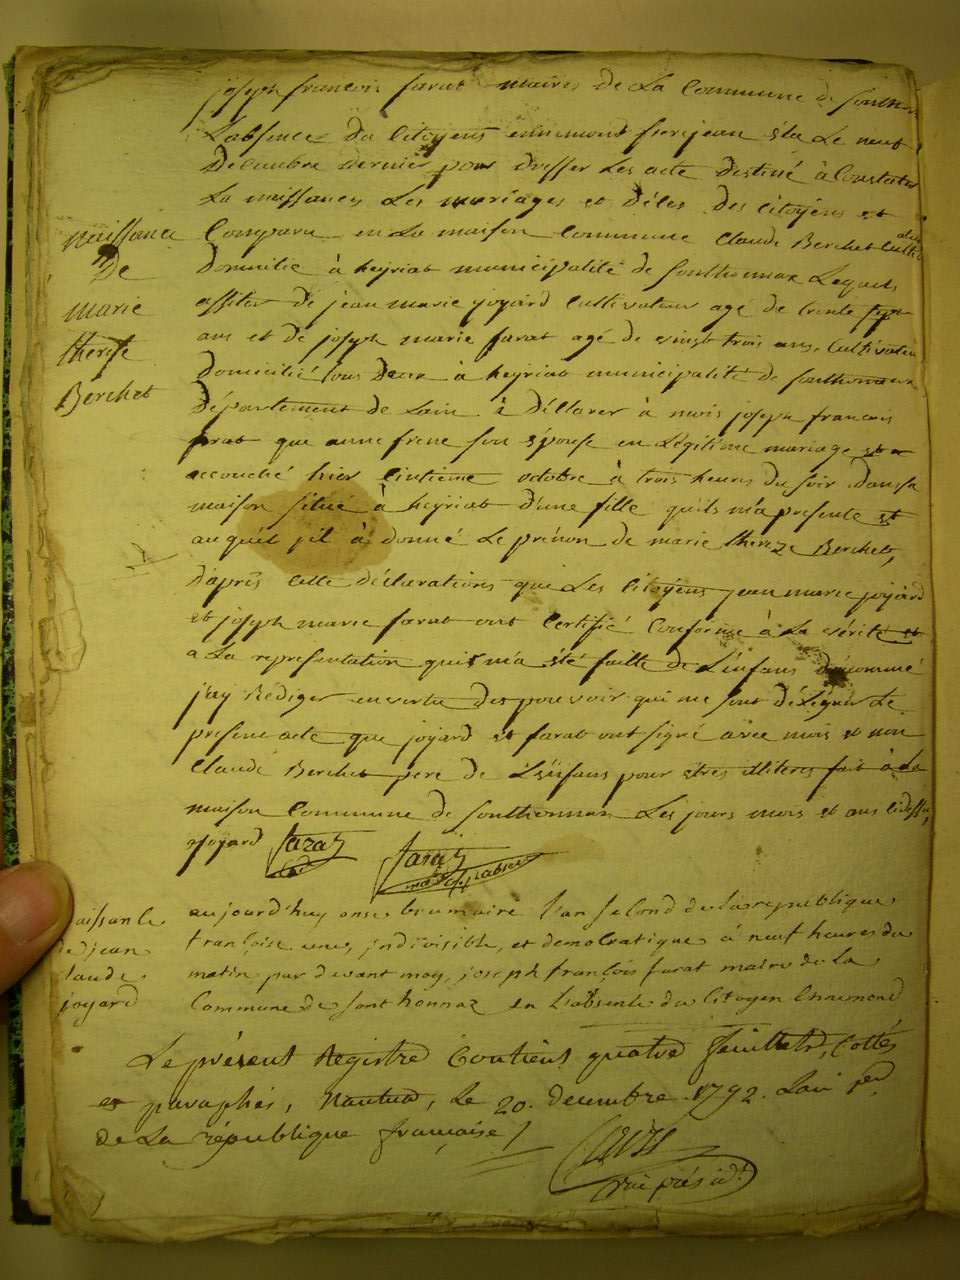 joseph francois farat maires de La Commune de Sonthon
Labsence du Citoyens ennemond frerejean élu Le neuf
Decembre dernier pour dresser Les acte destiné à Constater
La naissances Les mariages et déles des Citoyens et
Comparu en La maison Commune Claude Berchet Culti
domicilié à heyriat municipalité de Sonthonnax Lequels
assister de jean marie joyard Cultivateur agé de trente sept
ans et de joseph marie farat agé de vingt trois ans, Cultivateur
domicilié tous deux à heyriat municipalité de Sonthonnax
département de Lain à déllarer à mois joseph francois
farat que anne frene son épouse en Légitime mariage est
acouché hier Cintieme octobre à trois heures du soir dans sa
maison situé à heyriat d'une fille quils m'a presente et
au quél jil à donné Le prénon de marie thereze Berchet,
d'apres Cette déclarations que Les Citoyens jean marie joyard
et joseph marie farat ont Certifié Conforme à La vérité et
a La representation quis m'a été faitte de L'enfans dénommé
j'ay Rédiger en vertu des pouvoir qui me sont délégués Le
present acte que joyard et farat ont signé avec mois et non
Claude Berchet pere de L'enfans pour etres illiteres fait à La
maison Commune de Sonthonnax Les jours mois et ans Cidessu,
joyard farat farat
naissance
De
marie
therese
Berchet
aujourd'huy onse brumaire l'an second de la republique
francoise une, indivisible, et democratique à neuf heures du
matin par devant moy joseph françois farat maire de La
Commune de Sonthonnaz en L'absente du Citoyen Ennemond
aissance
de jean
laude
joyard
Le présent Registre Contient quatre feuillets, Cottés
et paraphés, Nantua, Le 20. decembre 1792. L'an 1er
de La république française /
vice présidt